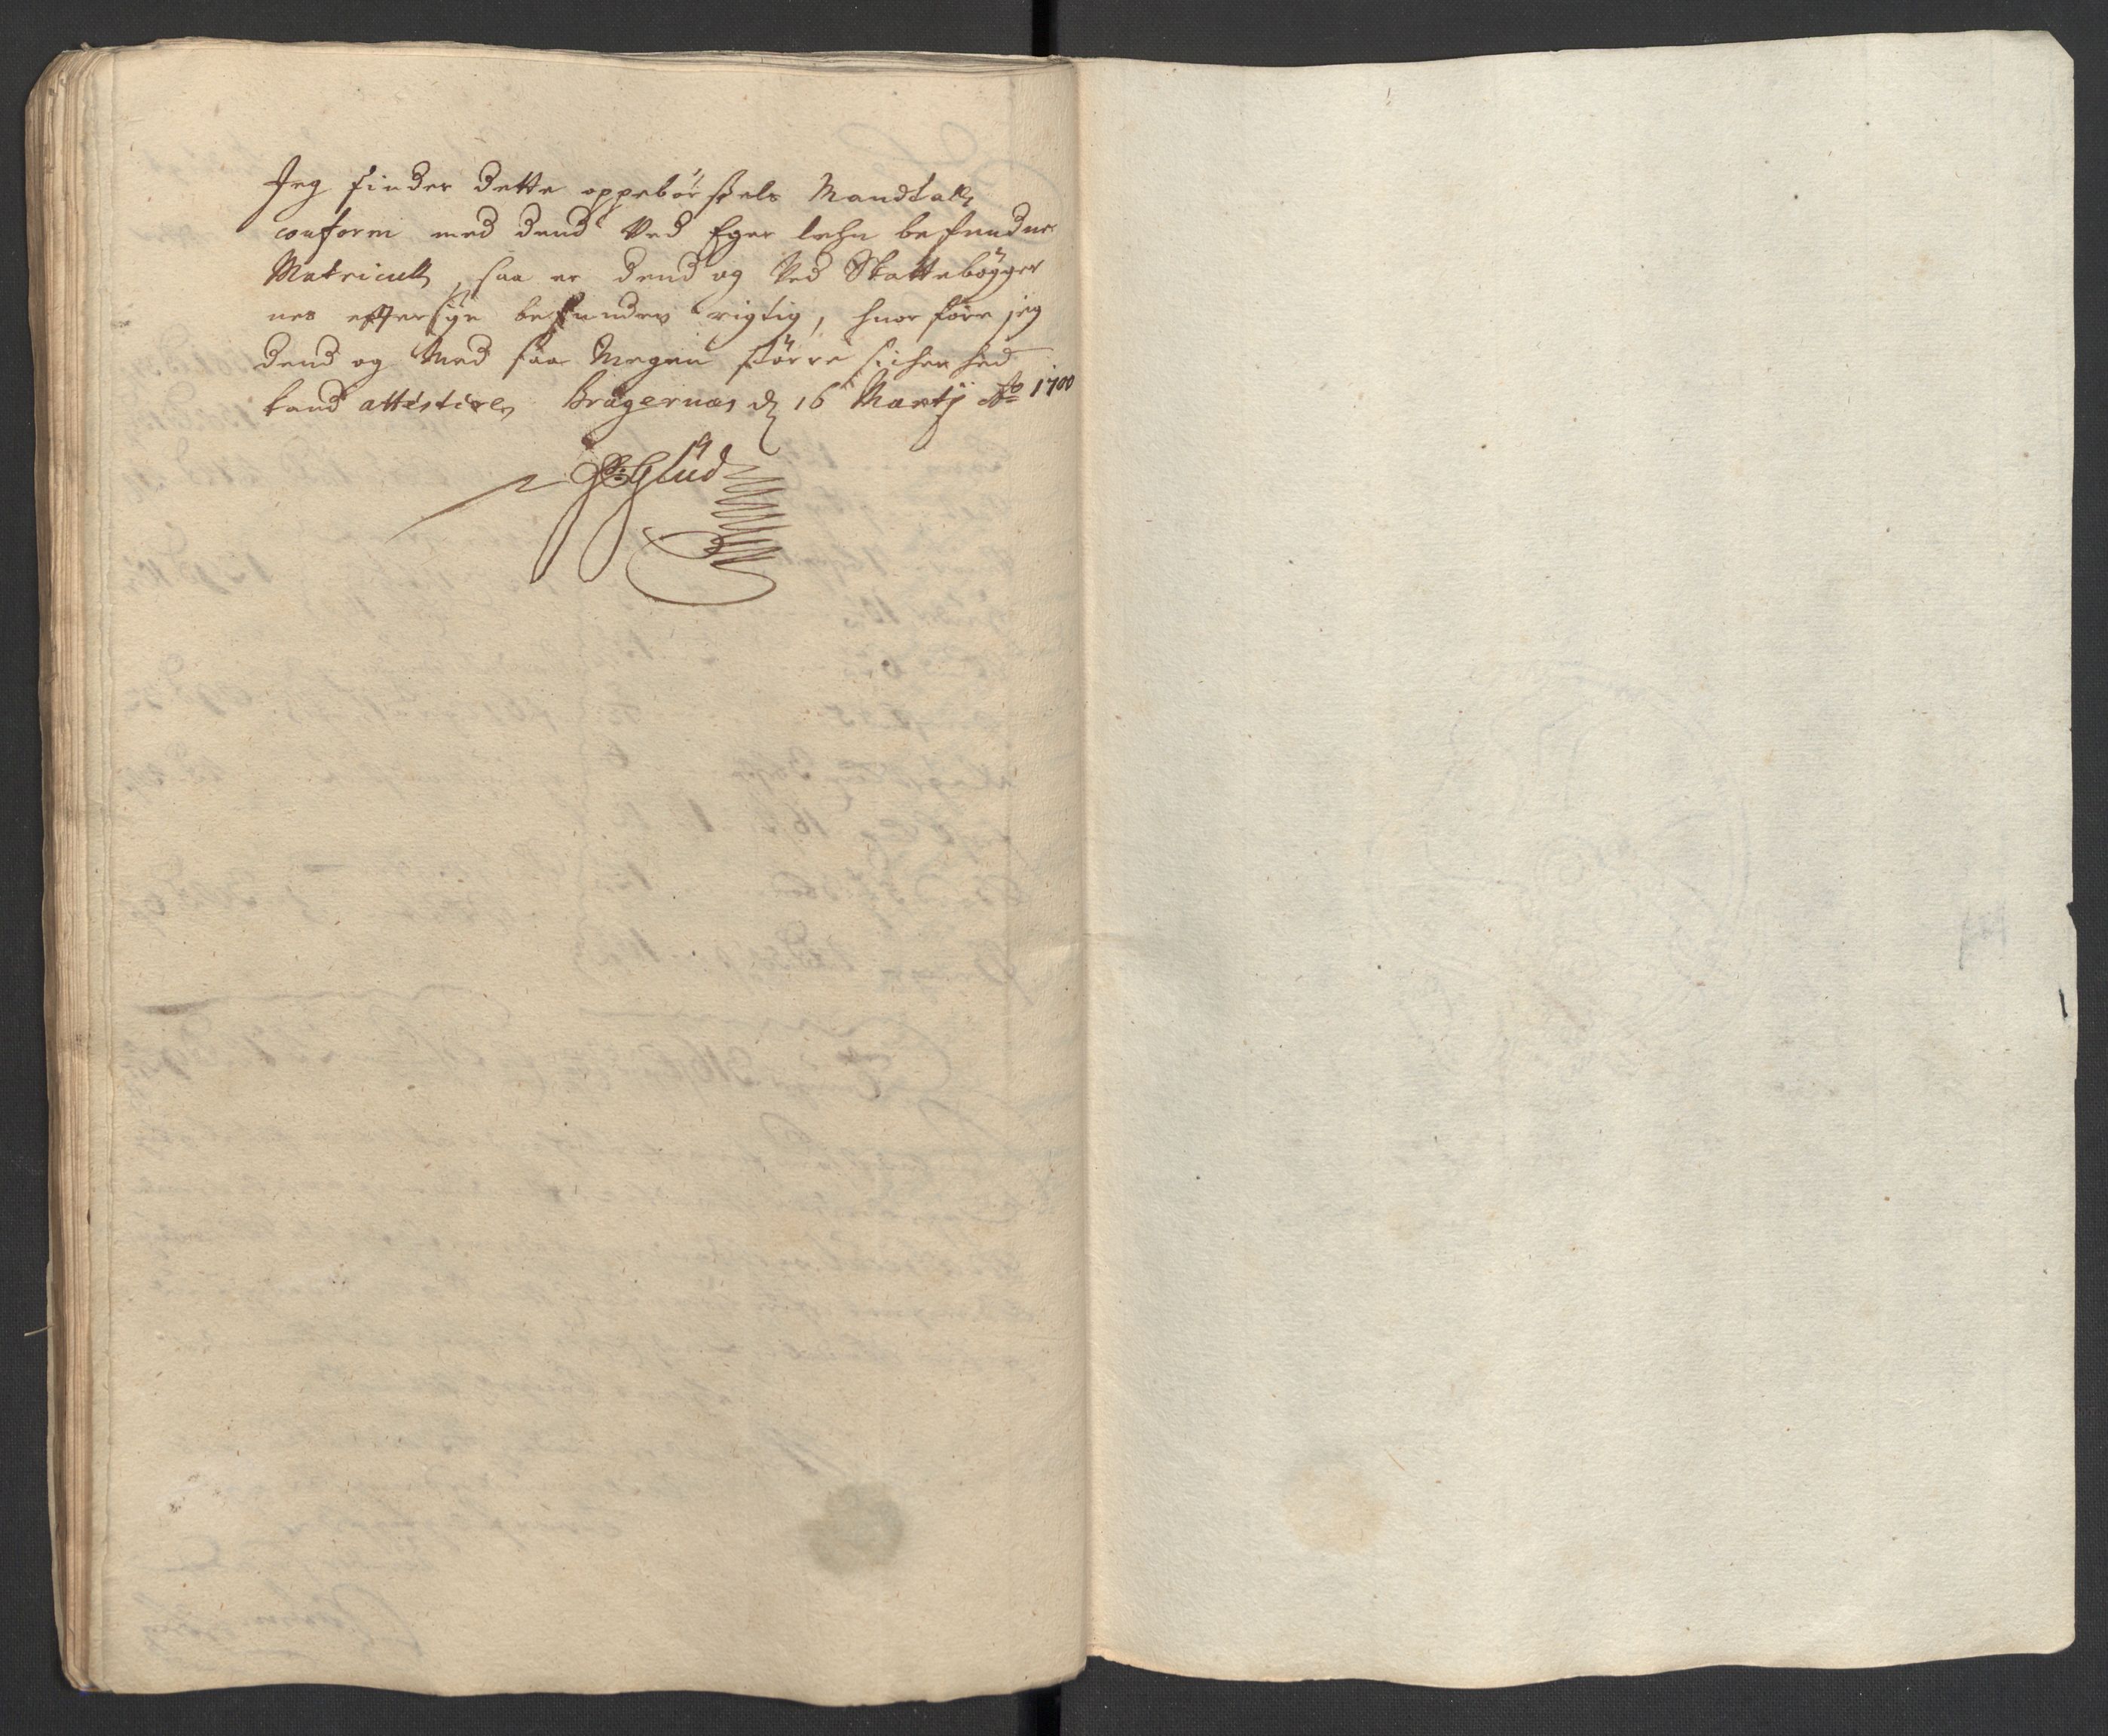 Jeg finder dette oppebörsels Mandtall
conform med dend Ved Eger lehn befundne
Matricull, saa er dend og Ved Skattebögger
nes eftersyn befunden rigtig, huorföre jeg
dend og Med saa Megen större sicherhed
kand attestere, Bragernæs d 16 Martij Ao 1700
Glud